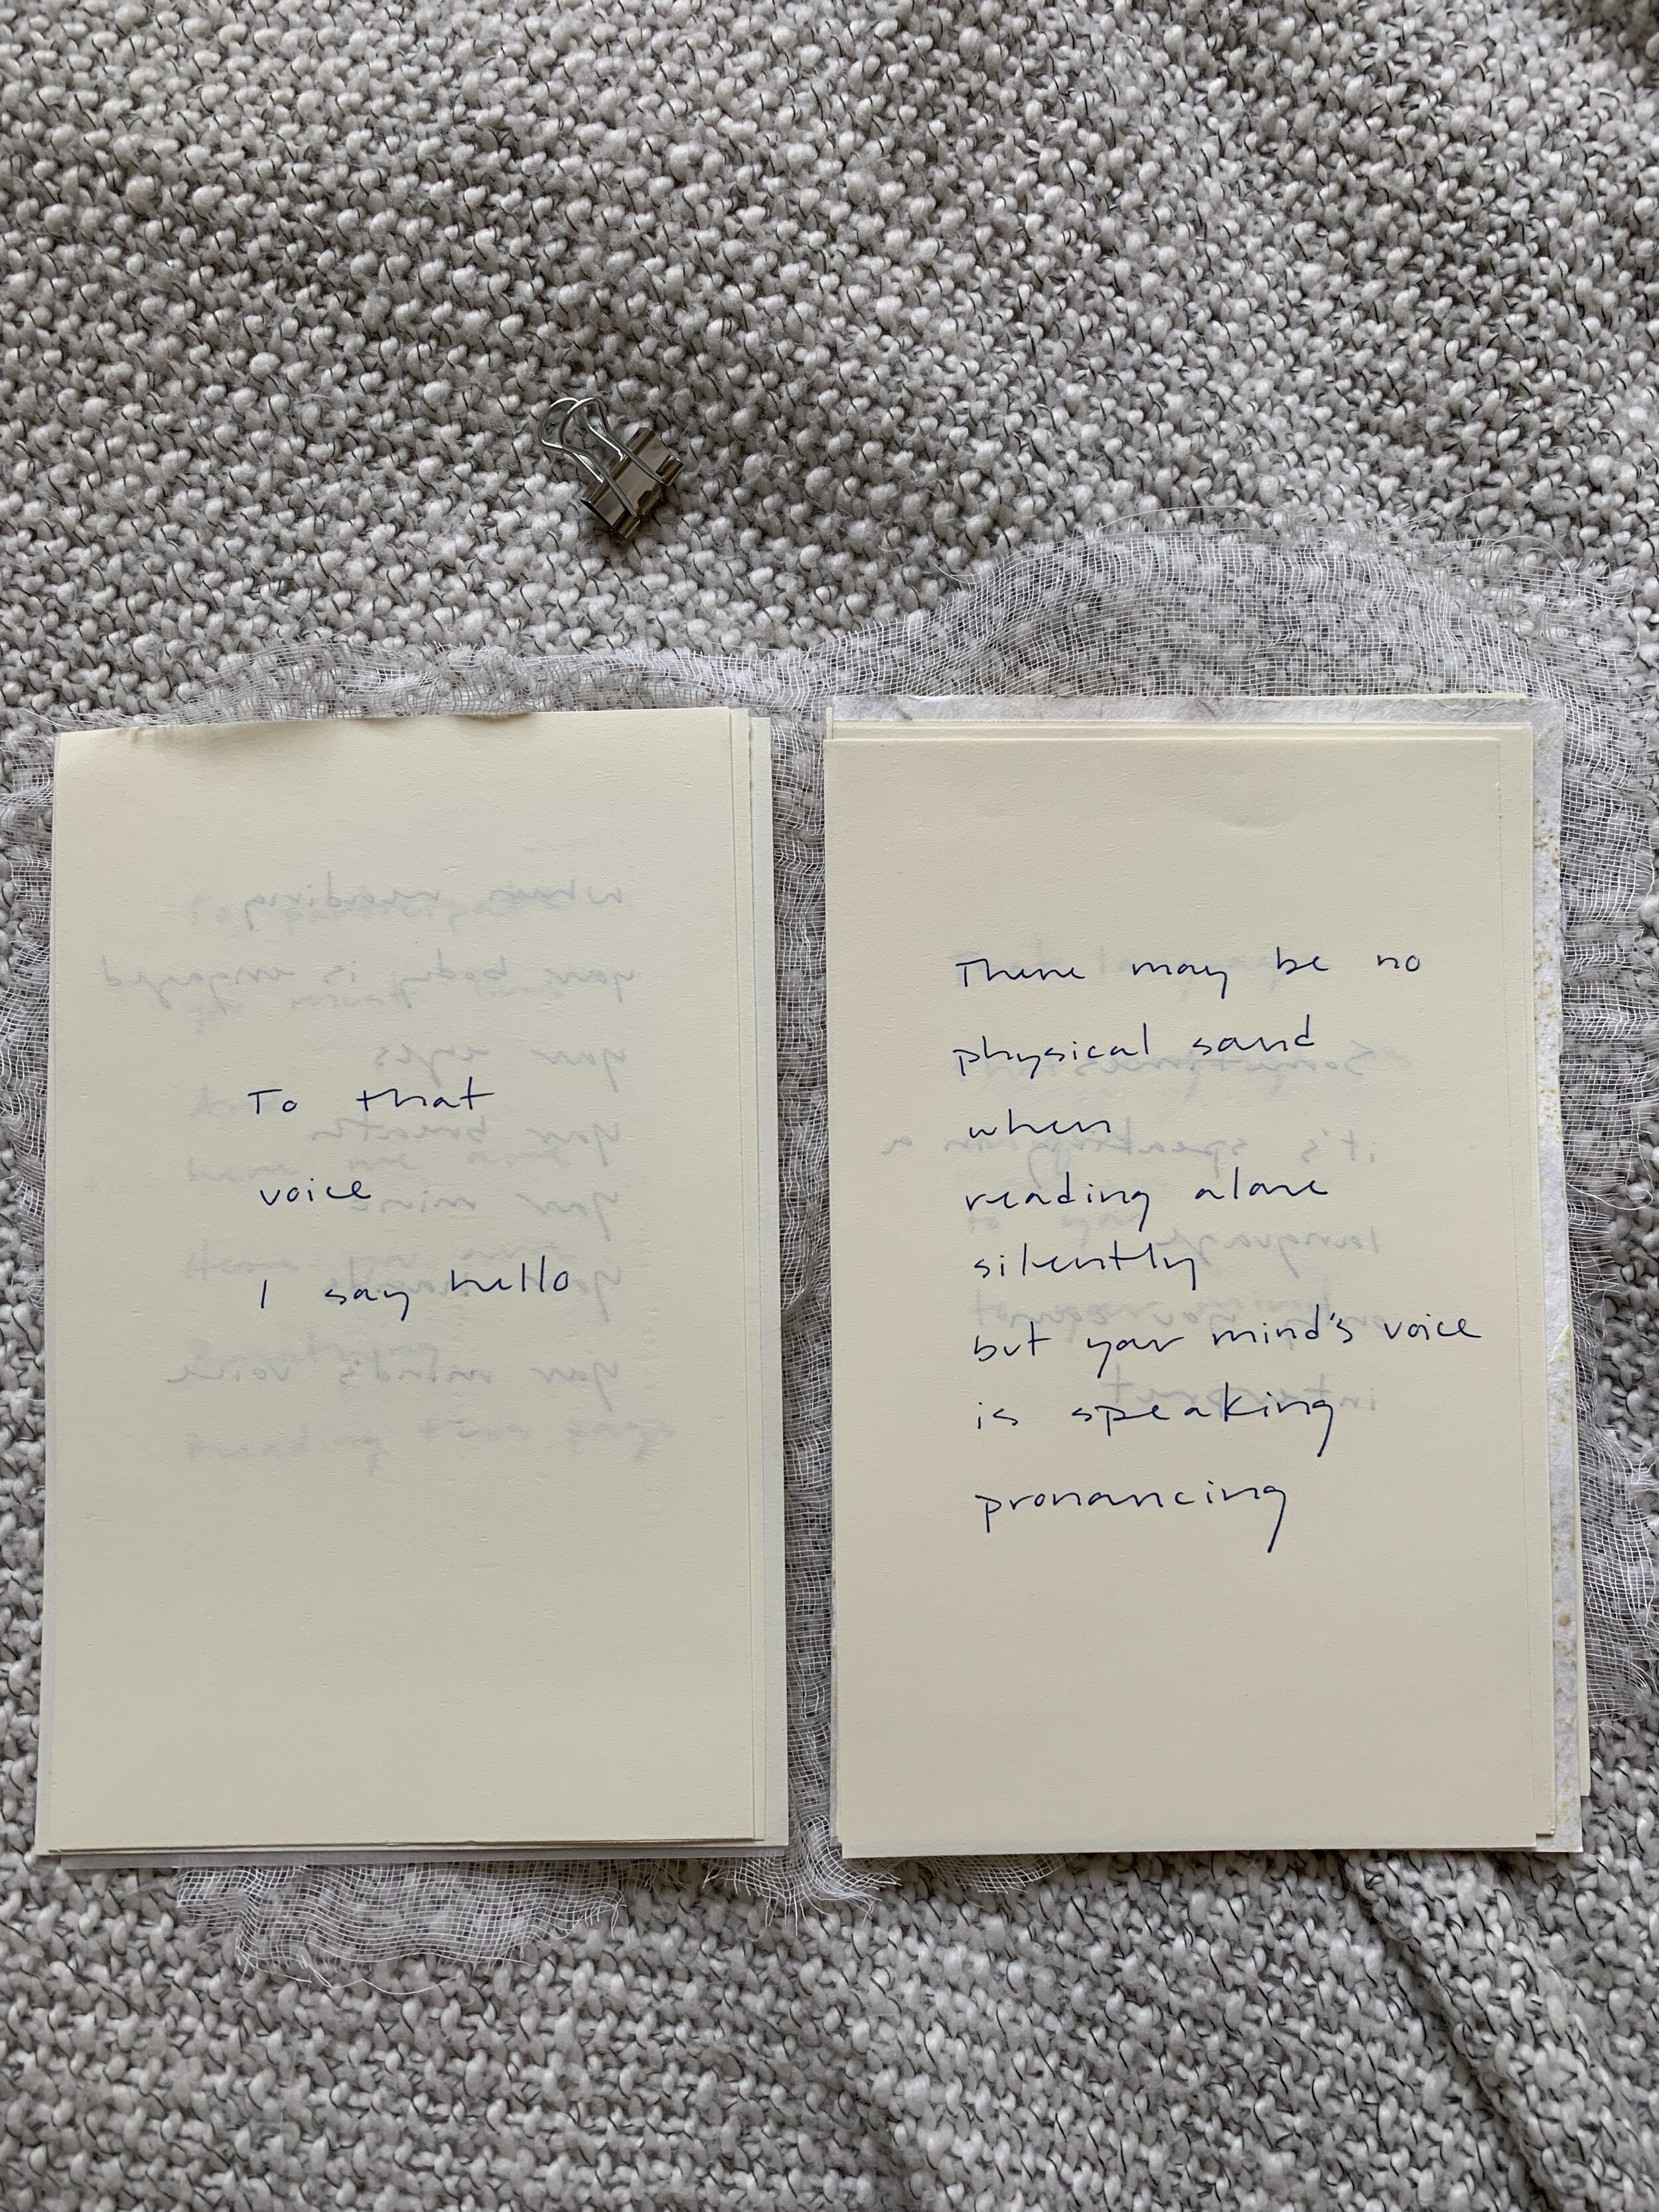 To that
voice
I say hello
There may be no
physical sound
when
reading alone
silently
but your mind's voice
is speaking
pronouncing